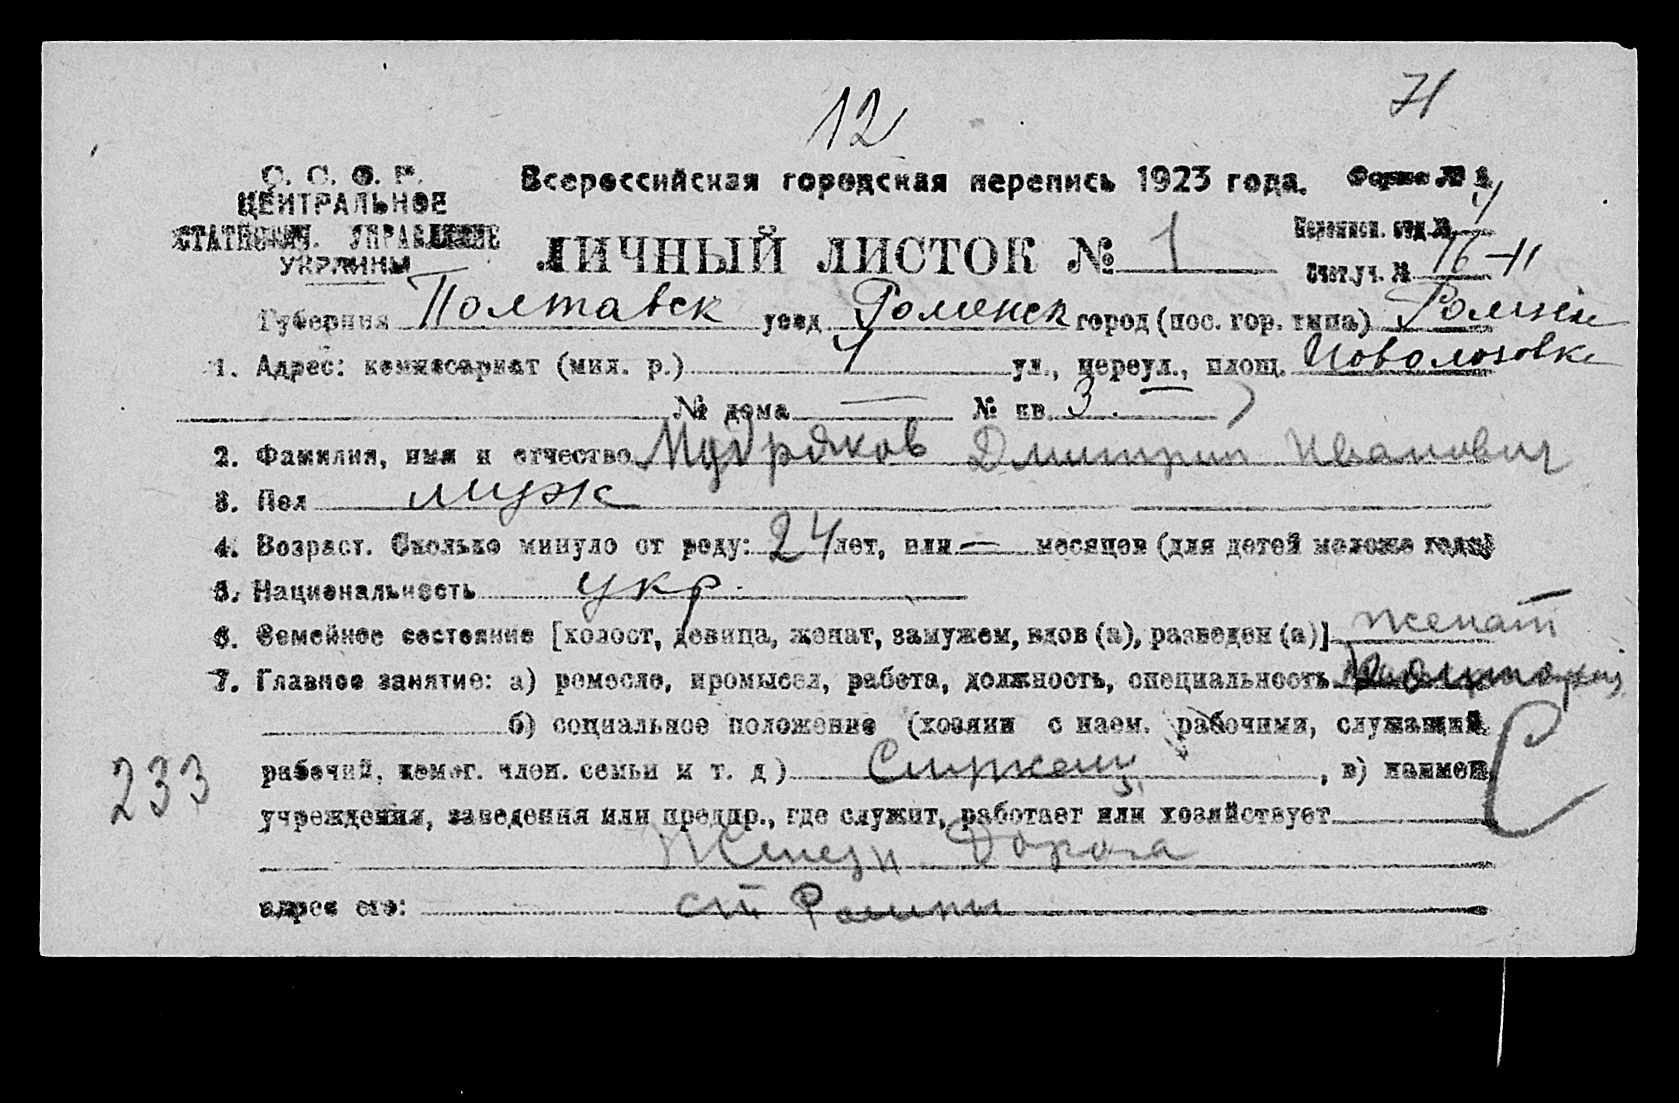 71
12
С. С. Ф. Р.
ЦЕНТРАЛЬНОЕ
СТАТИСТИЧ. УПРАВЛЕНИЕ
УКРАИНЫ
Всероссийская городская перепись 1923 года.
Форма №
ЛИЧНЫЙ ЛИСТОК № 1
Переписн. отд. №
Счет. уч. № 16-11
Губерния Полтавск уезд Роменск город (пос. гор. типа) Ромны
1. Адрес: комиссариат (мил. р.) ул., переул., площ.
№ дома — № кв. 3. —
2. Фамилия, имя и отчество Мудряков Дмитрий Иванович
3. Пол муж
4. Возраст. Сколько минуло от роду: 24 лет, или — месяцев (для детей моложе года)
5. Национальность укр.
6. Семейное состояние [холост, девица, женат, замужем, вдов (а), разведен (а)] женат
7. Главное занятие: а) ремесло, промысел, работа, должность, специальность
б) социальное положение (хозяин с наем. рабочими, служащий,
рабочий, помог. член. семьи и т. д.) Служащ, в) наимен.
учреждения, заведения или предпр., где служит, работает или хозяйствует
Железн Дорога
адрес его: ст Ромны
233
С